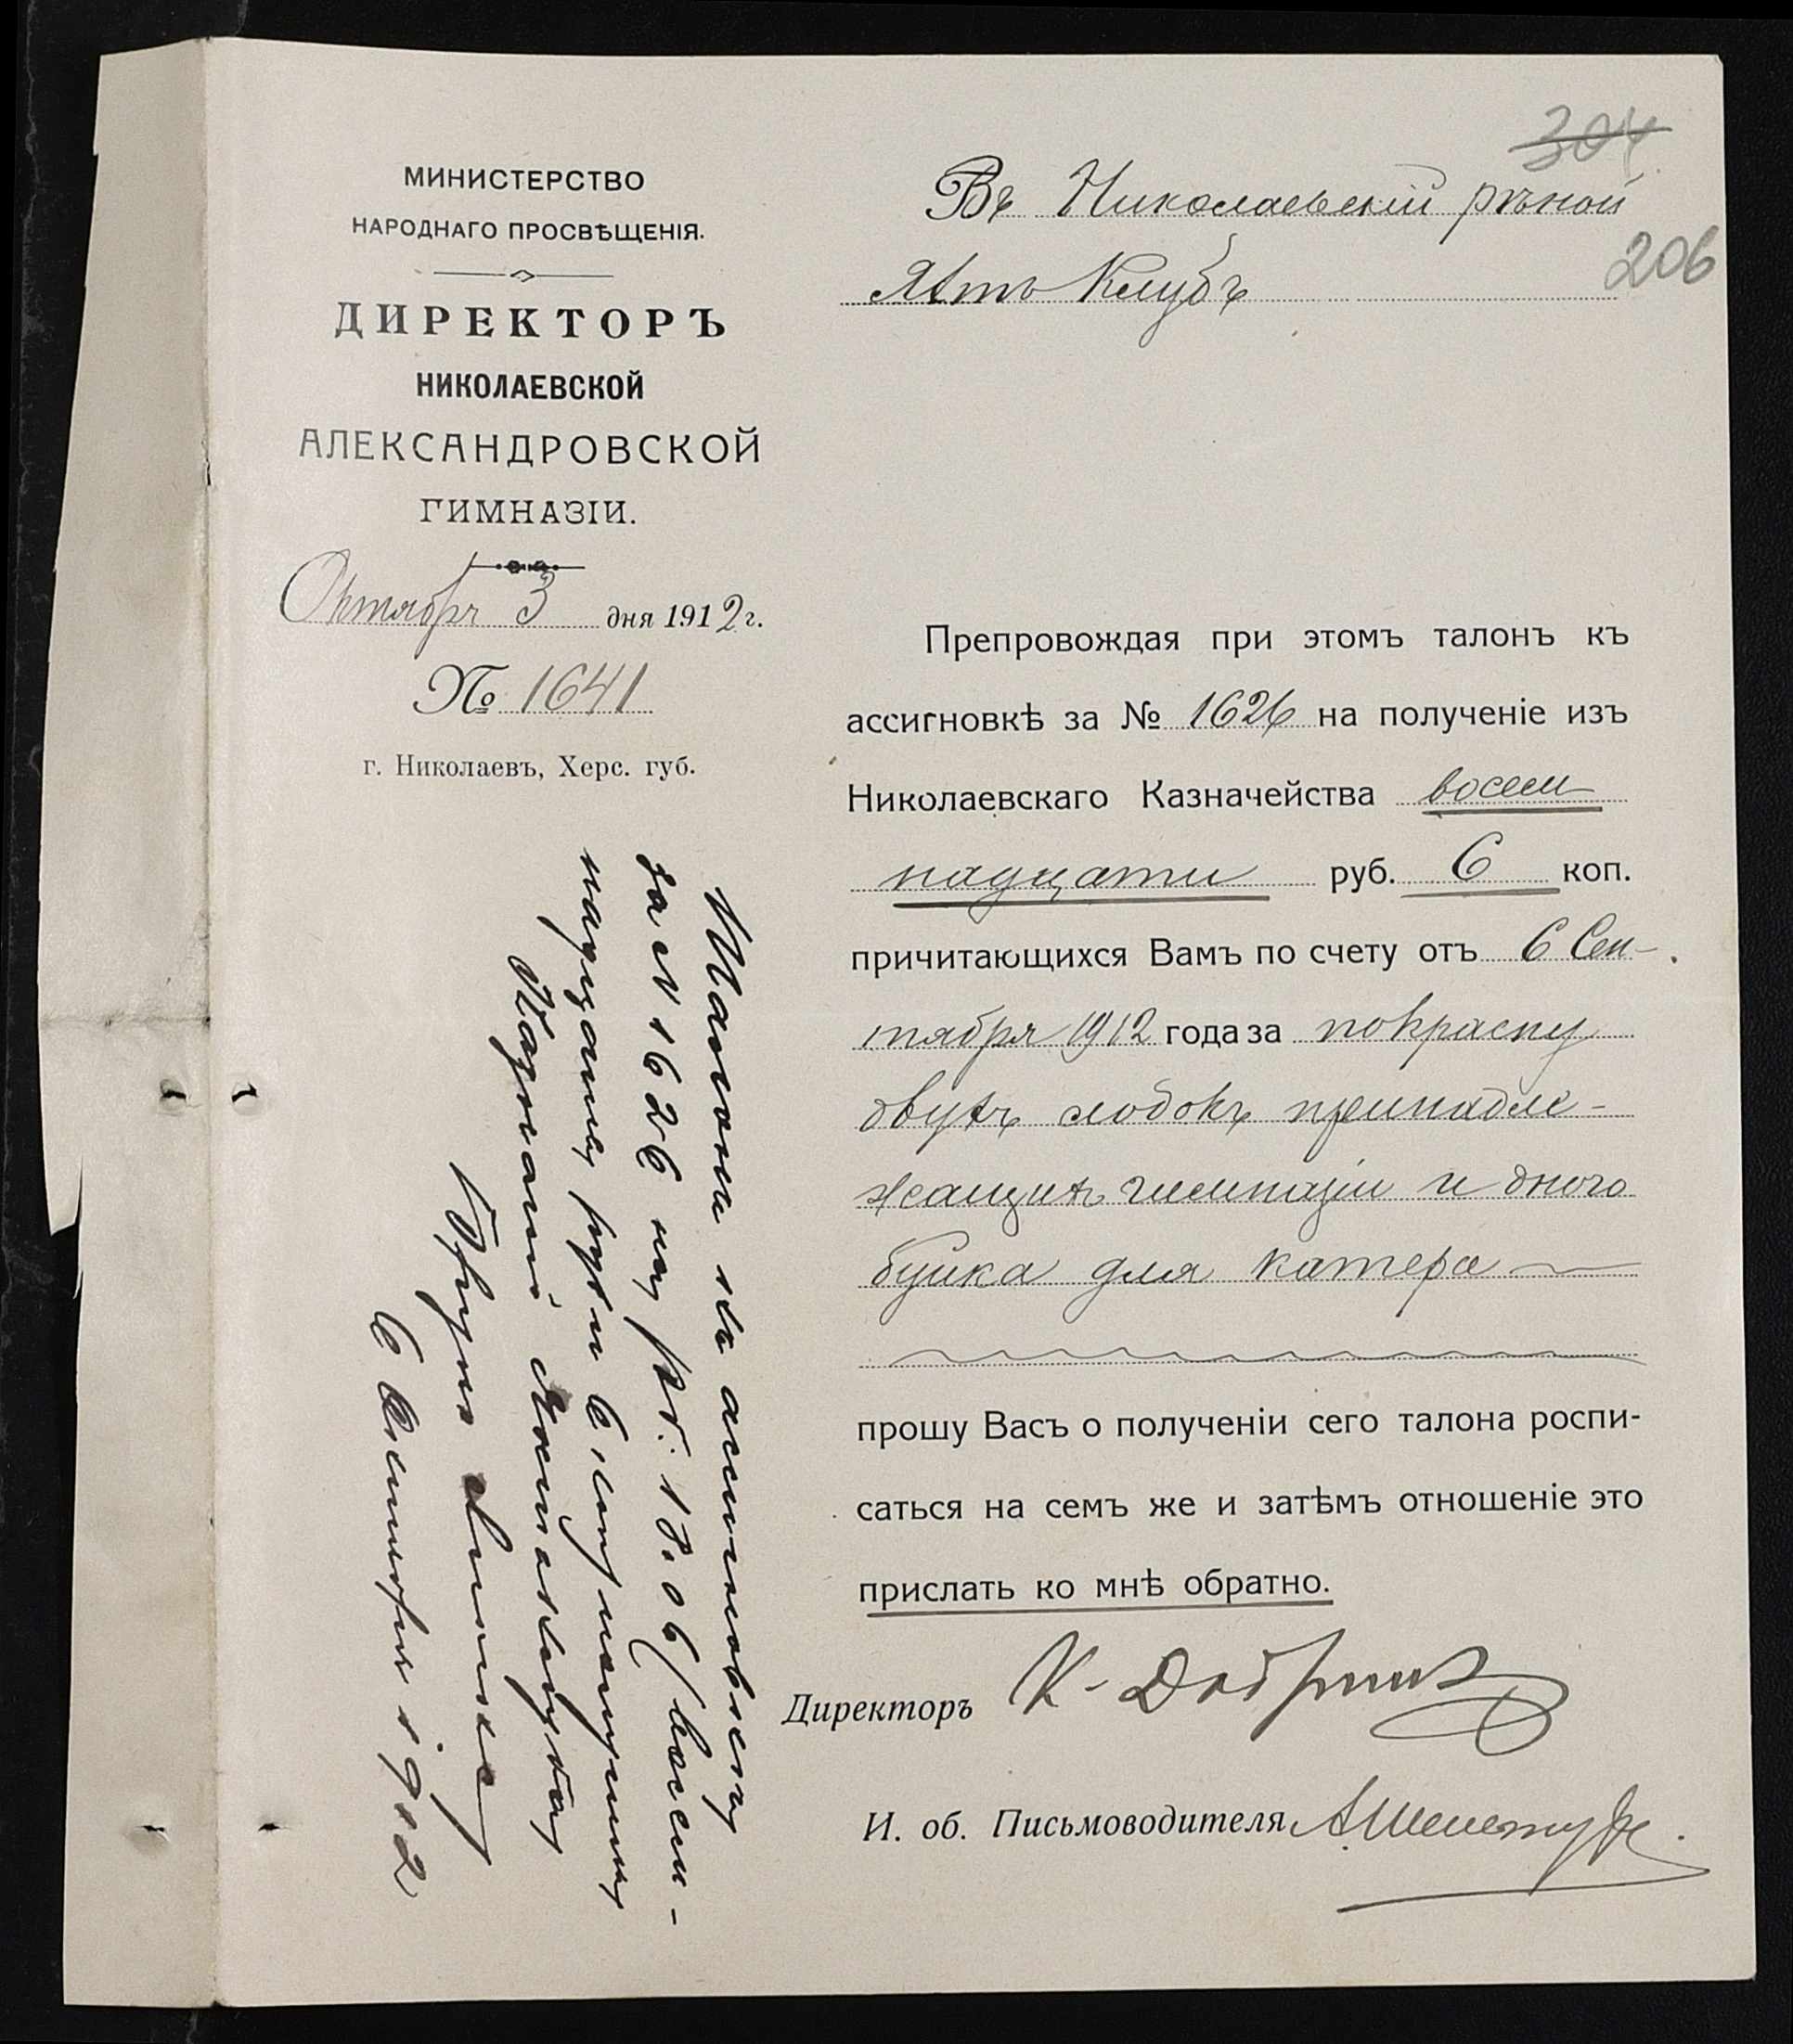 304
206
МИНИСТЕРСТВО
НАРОДНАГО ПРОСВѢЩЕНІЯ.
ДИРЕКТОРЪ
НИКОЛАЕВСКОЙ
АЛЕКСАНДРОВСКОЙ
ГИМНАЗІИ.
Октябрь 3 дня 1912 г.
№ 1641
г. Николаевъ, Херс. губ.
Въ Николаевскій рѣчной
Яхтъ Клубъ
Препровождая при этомъ талонъ къ
ассигновкѣ за № 1626 на полученіе изъ
Николаевскаго Казначейства восем
надцати руб. 6 коп.
причитающихся Вамъ по счету отъ 6 Сен-
тября 1912 года за покраску
двухъ лодокъ принадле-
жащихъ гимназіи и дного
буйка для катера
прошу Васъ о полученіи сего талона роспи-
саться на семъ же и затѣмъ отношеніе это
прислать ко мнѣ обратно.
Директоръ К. Добр
И. об. Письмоводителя А.
Талонъ къ ассигновкѣ
за № 1626 на рб. 18.06 (восем-
надцать руб и 6 коп получилъ
6 1912